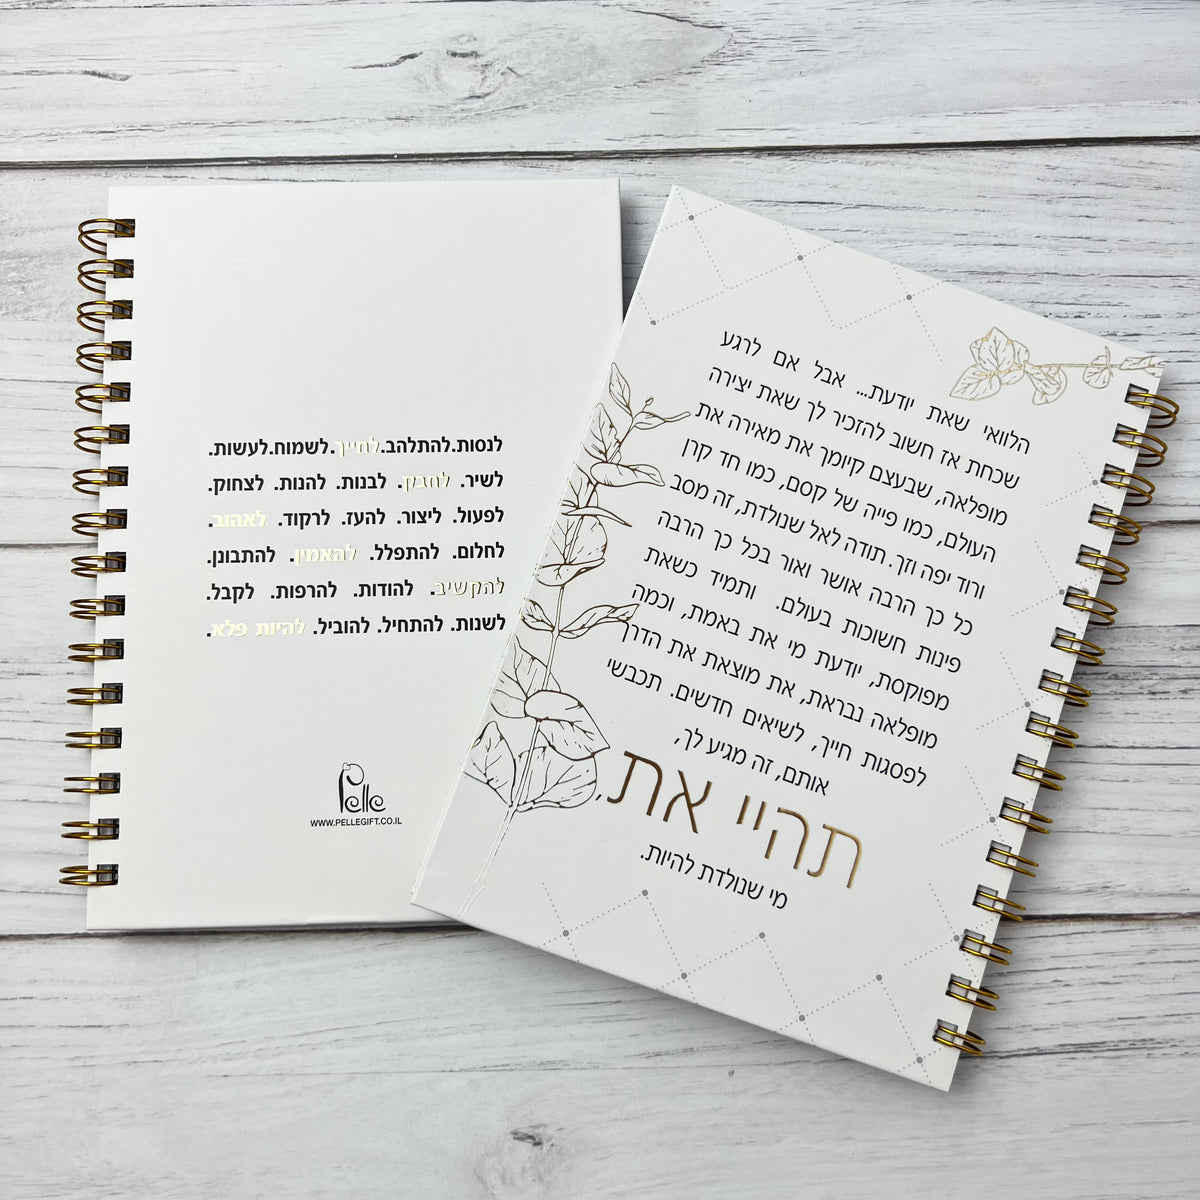 לנסות.להתלהב.לחייך.לשמוח.לעשות.
לשיר. לחבק. לבנות. להנות. לצחוק.
לפעול. ליצור. להעז. לרקוד. לאהוב.
לחלום. להתפלל. להאמין. להתבונן.
להקשיב. להודות. להרפות. לקבל.
לשנות. להתחיל. להוביל. להיות פלא.
Pelle
WWW.PELLEGIFT.CO.IL
הלוואי שאת יודעת... אבל אם לרגע
שכחת אז חשוב להזכיר לך שאת יצירה
מופלאה, שבעצם קיומך את מאירה את
העולם, כמו פייה של קסם, כמו חד קרן
ורוד יפה וזך. תודה לאל שנולדת, זה מסב
כל כך הרבה אושר ואור בכל כך הרבה
פינות חשוכות בעולם. ותמיד כשאת
מפוקסת, יודעת מי את באמת, וכמה
מופלאה נבראת, את מוצאת את הדרך
לפסגות חייך, לשיאים חדשים. תכבשי
אותם, זה מגיע לך,
תהיי את,
מי שנולדת להיות.